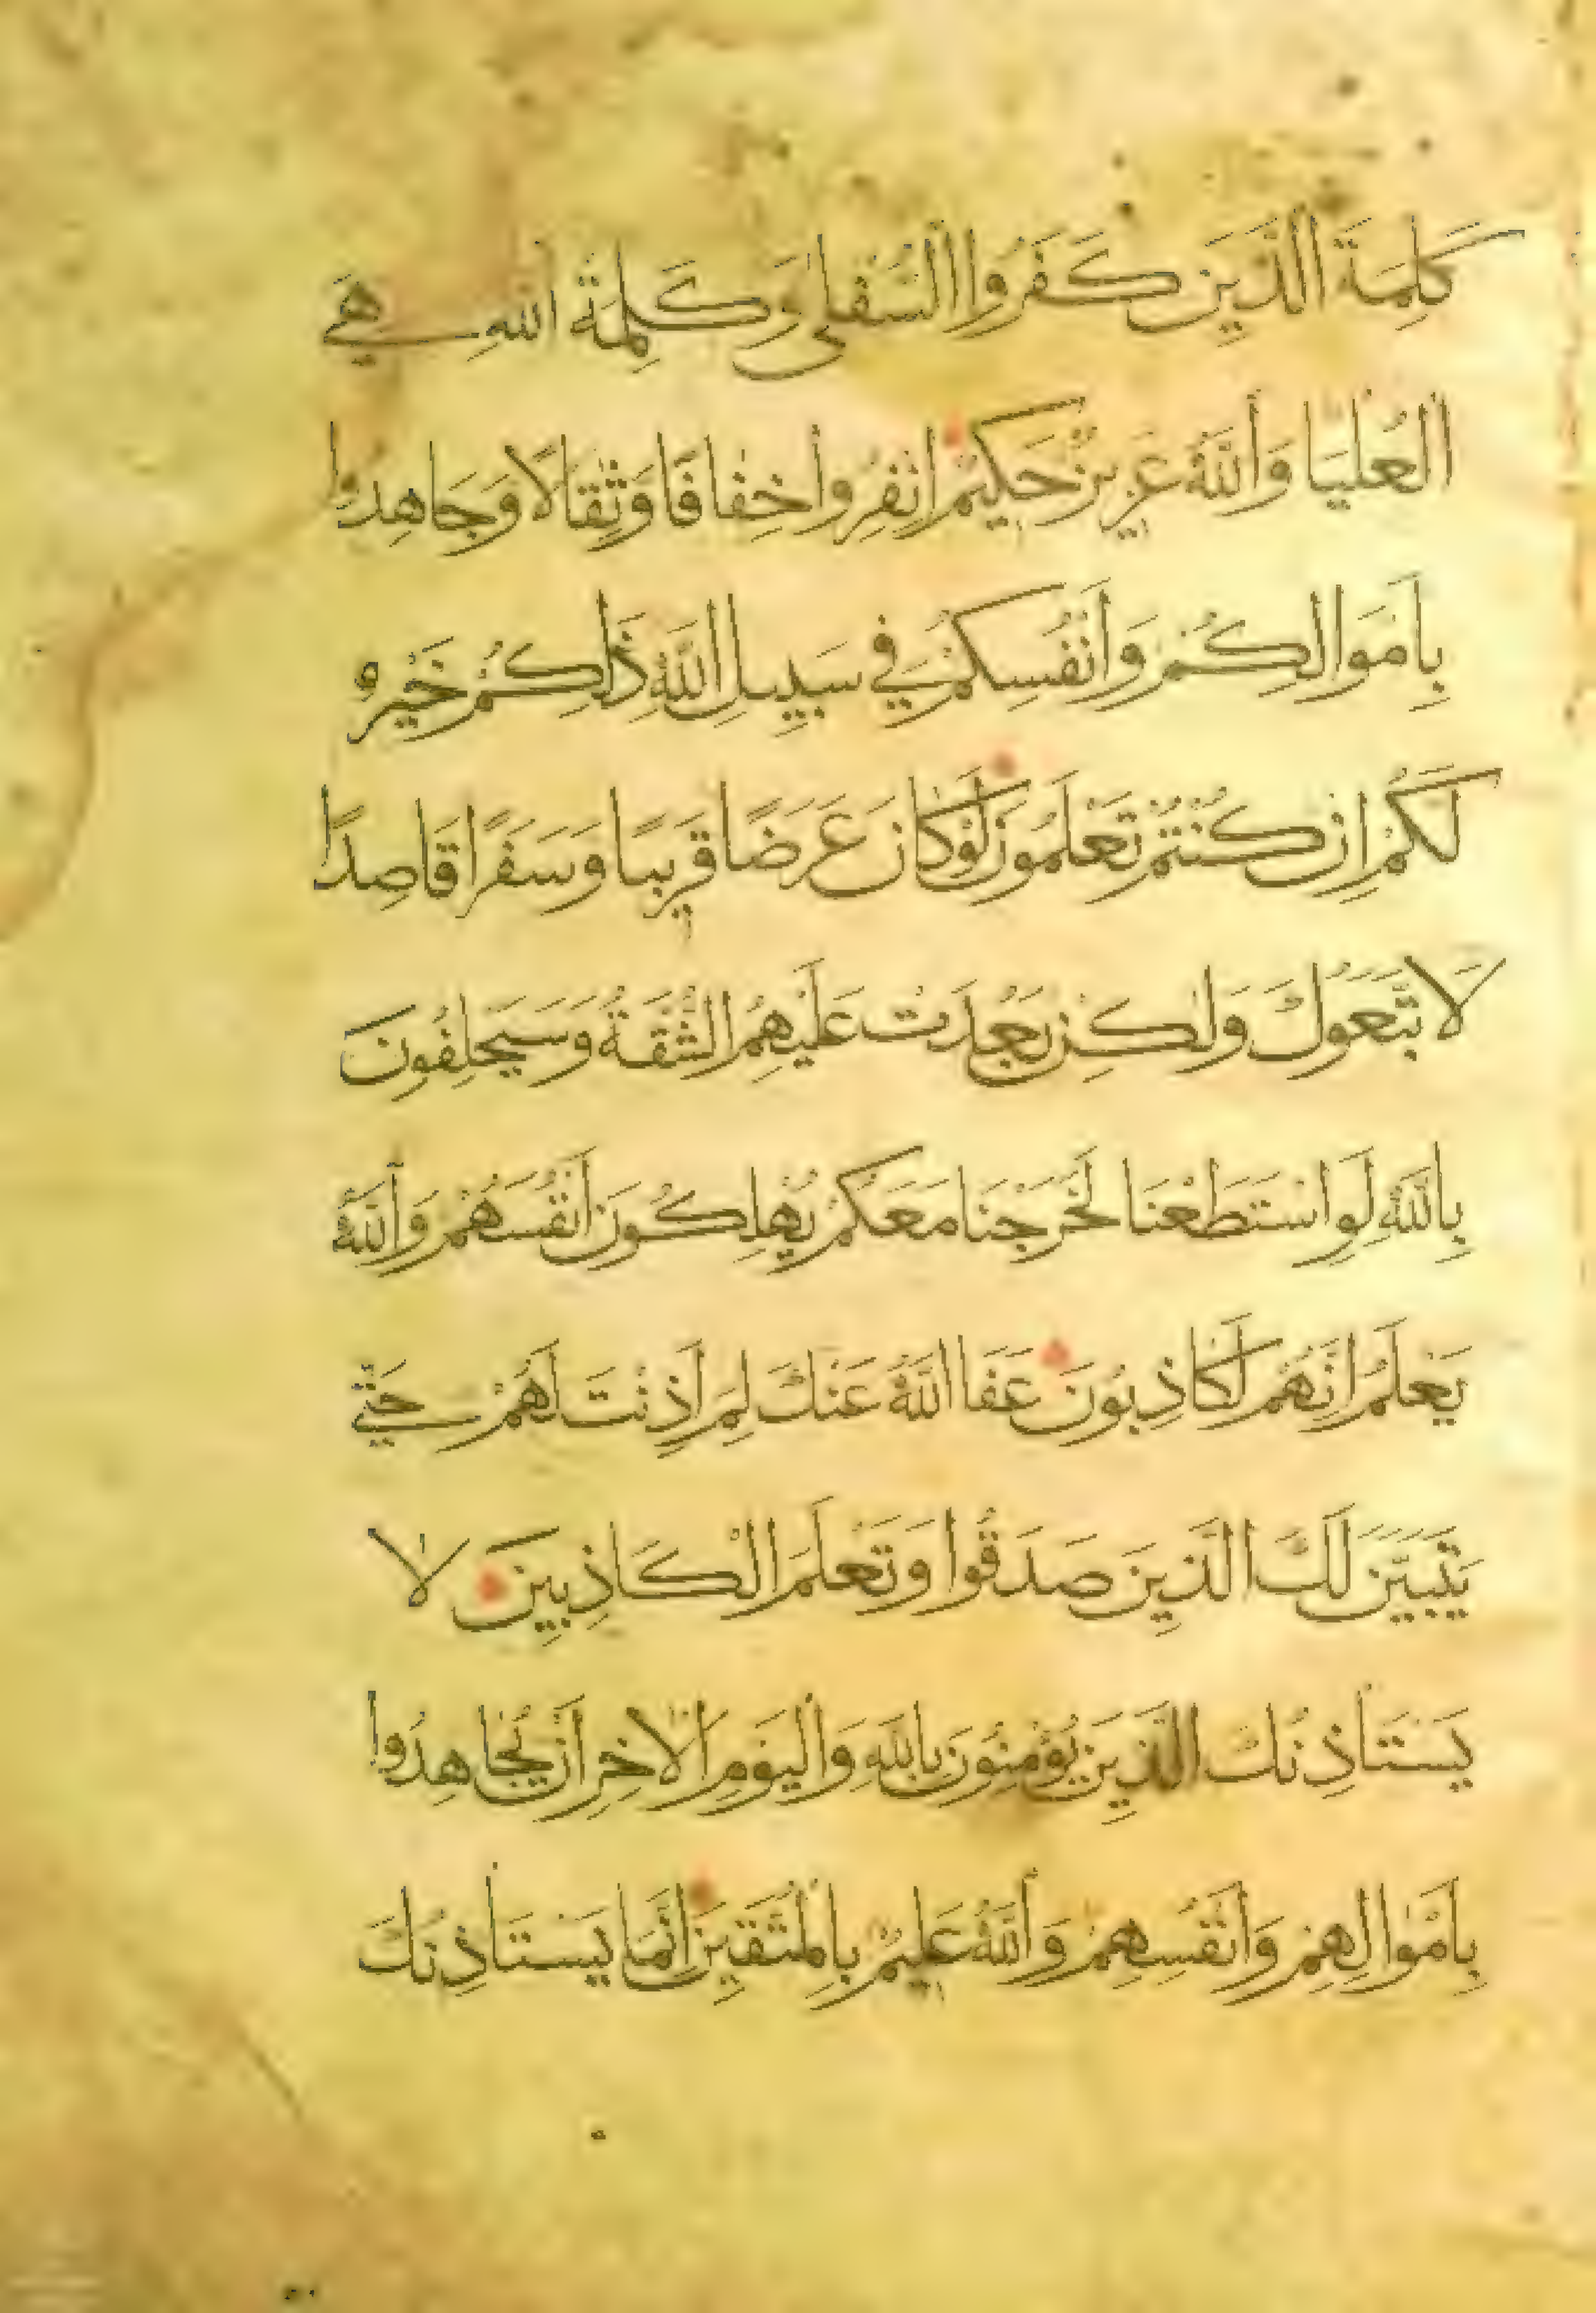 كَلِمَةَ الَّذِينَ كَفَرُوا السُّفْلَى وَكَلِمَةُ اللَّهِ هِيَ
الْعُلْيَا وَاللَّهُ عَزِيزٌ حَكِيمٌ انْفِرُوا خِفَافًا وَثِقَالًا وَجَاهِدُوا
بِأَمْوَالِكُمْ وَأَنْفُسِكُمْ فِي سَبِيلِ اللَّهِ ذَالِكُمْ خَيْرٌ
لَكُمْ إِنْ كُنْتُمْ تَعْلَمُونَ لَوْ كَانَ عَرَضًا قَرِيبًا وَسَفَرًا قَاصِدًا
لَاتَّبَعُوكَ وَلَكِنْ بَعُدَتْ عَلَيْهِمُ الشُّقَّةُ وَسَيَحْلِفُونَ
بِاللَّهِ لَوِ اسْتَطَعْنَا لَخَرَجْنَا مَعَكُمْ يُهْلِكُونَ أَنْفُسَهُمْ وَاللَّهُ
يَعْلَمُ إِنَّهُمْ لَكَاذِبُونَ عَفَا اللَّهُ عَنْكَ لِمَ أَذِنْتَ لَهُمْ حَتَّى
يَتَبَيَّنَ لَكَ الَّذِينَ صَدَقُوا وَتَعْلَمَ الْكَاذِبِينَ لَا
يَسْتَأْذِنُكَ الَّذِينَ يُؤْمِنُونَ بِاللَّهِ وَالْيَوْمِ الْآخِرِ أَنْ يُجَاهِدُوا
بِأَمْوَالِهِمْ وَأَنْفُسِهِمْ وَاللَّهُ عَلِيمٌ بِالْمُتَّقِينَ إِنَّمَا يَسْتَأْذِنُكَ